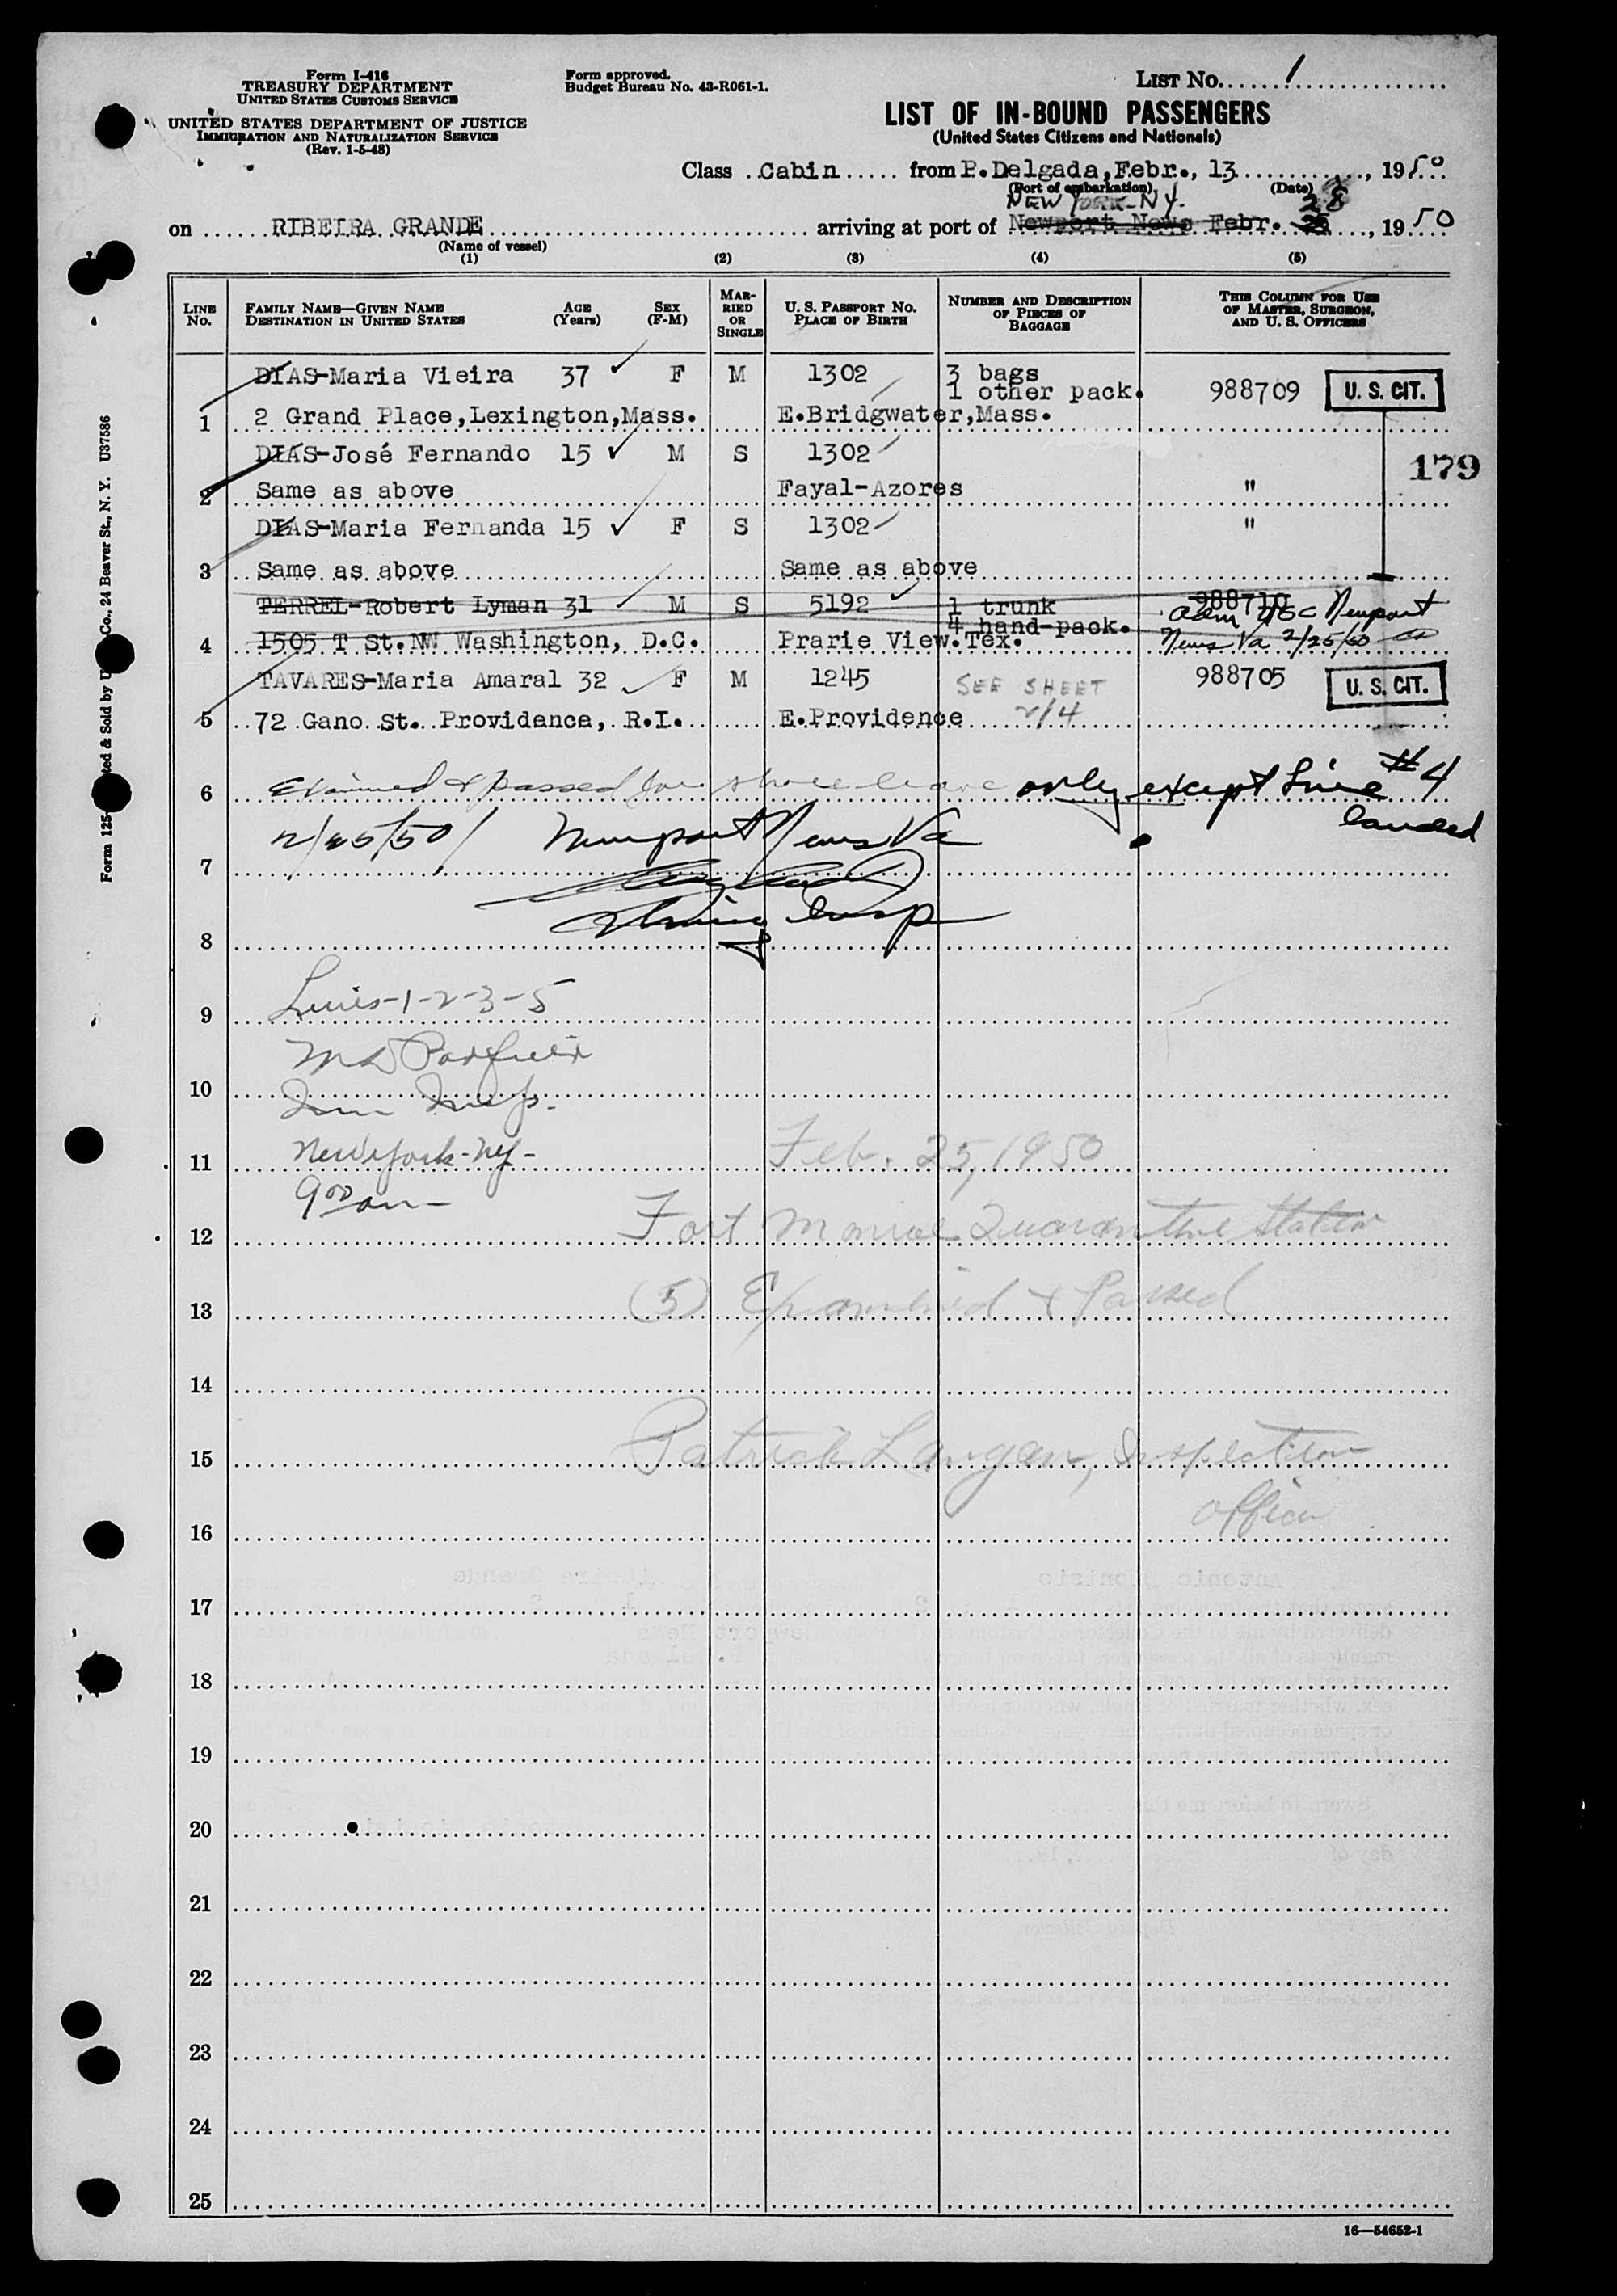 Form I-416
TREASURY DEPARTMENT
UNITED STATES CUSTOMS SERVICE
UNITED STATES DEPARTMENT OF JUSTICE
IMMIGRATION AND NATURALIZATION SERVICE
(Rev. 1-5-48)
Form approved.
Budget Bureau No. 43-R061-1.
LIST No. 1
LIST OF IN-BOUND PASSENGERS
(United States Citizens and Nationals)
Class Cabin from P.Delgada, Febr., 13, 1950
(Port of embarkation) (Date)
NEW YORK-NY. 28
on RIBEIRA GRANDE arriving at port of Newport News Febr. 25, 1950
(Name of vessel)
(1) (2) (3) (4) (5)
LINE No.
FAMILY NAME—GIVEN NAME
DESTINATION IN UNITED STATES
AGE (Years)
SEX (F-M)
MARRIED OR SINGLE
U. S. PASSPORT No.
PLACE OF BIRTH
NUMBER AND DESCRIPTION OF PIECES OF BAGGAGE
THIS COLUMN FOR USE OF MASTER, SURGEON, AND U. S. OFFICERS
DIAS-Maria Vieira 37 F M 1302 3 bags
1 other pack. 988709 U. S. CIT.
1 2 Grand Place,Lexington,Mass. E.Bridgwater,Mass.
DIAS-José Fernando 15 M S 1302
179
2 Same as above Fayal-Azores "
DIAS-Maria Fernanda 15 F S 1302 "
3 Same as above Same as above
TERREL-Robert Lyman 31 M S 5192 1 trunk 988710
4 hand-pack. Adm USC Newport
4 1505 T St.NW Washington, D.C. Prarie View.Tex. News Va 2/25/50
TAVARES-Maria Amaral 32 F M 1245 SEE SHEET 988705 U. S. CIT.
5 72 Gano St. Providance, R.I. E.Providence 2/4
6 Examined & passed for shore leave only except Line #4
landed
2/25/50 Newport News Va
7
Immig Insp
8
Lines-1-2-3-5
9
10
Imm Insp.
New York-NY-
11 Feb. 25, 1950
9 00 am
12 Fort Monroe Quarantine Station
13 (5) Examined & Passed
14
15 Patrick Langan, Inspection
16 Officer
17
18
19
20
21
22
23
24
25
16—54652-1
Form 125
ted & Sold by U
Co., 24 Beaver St., N. Y. U37586